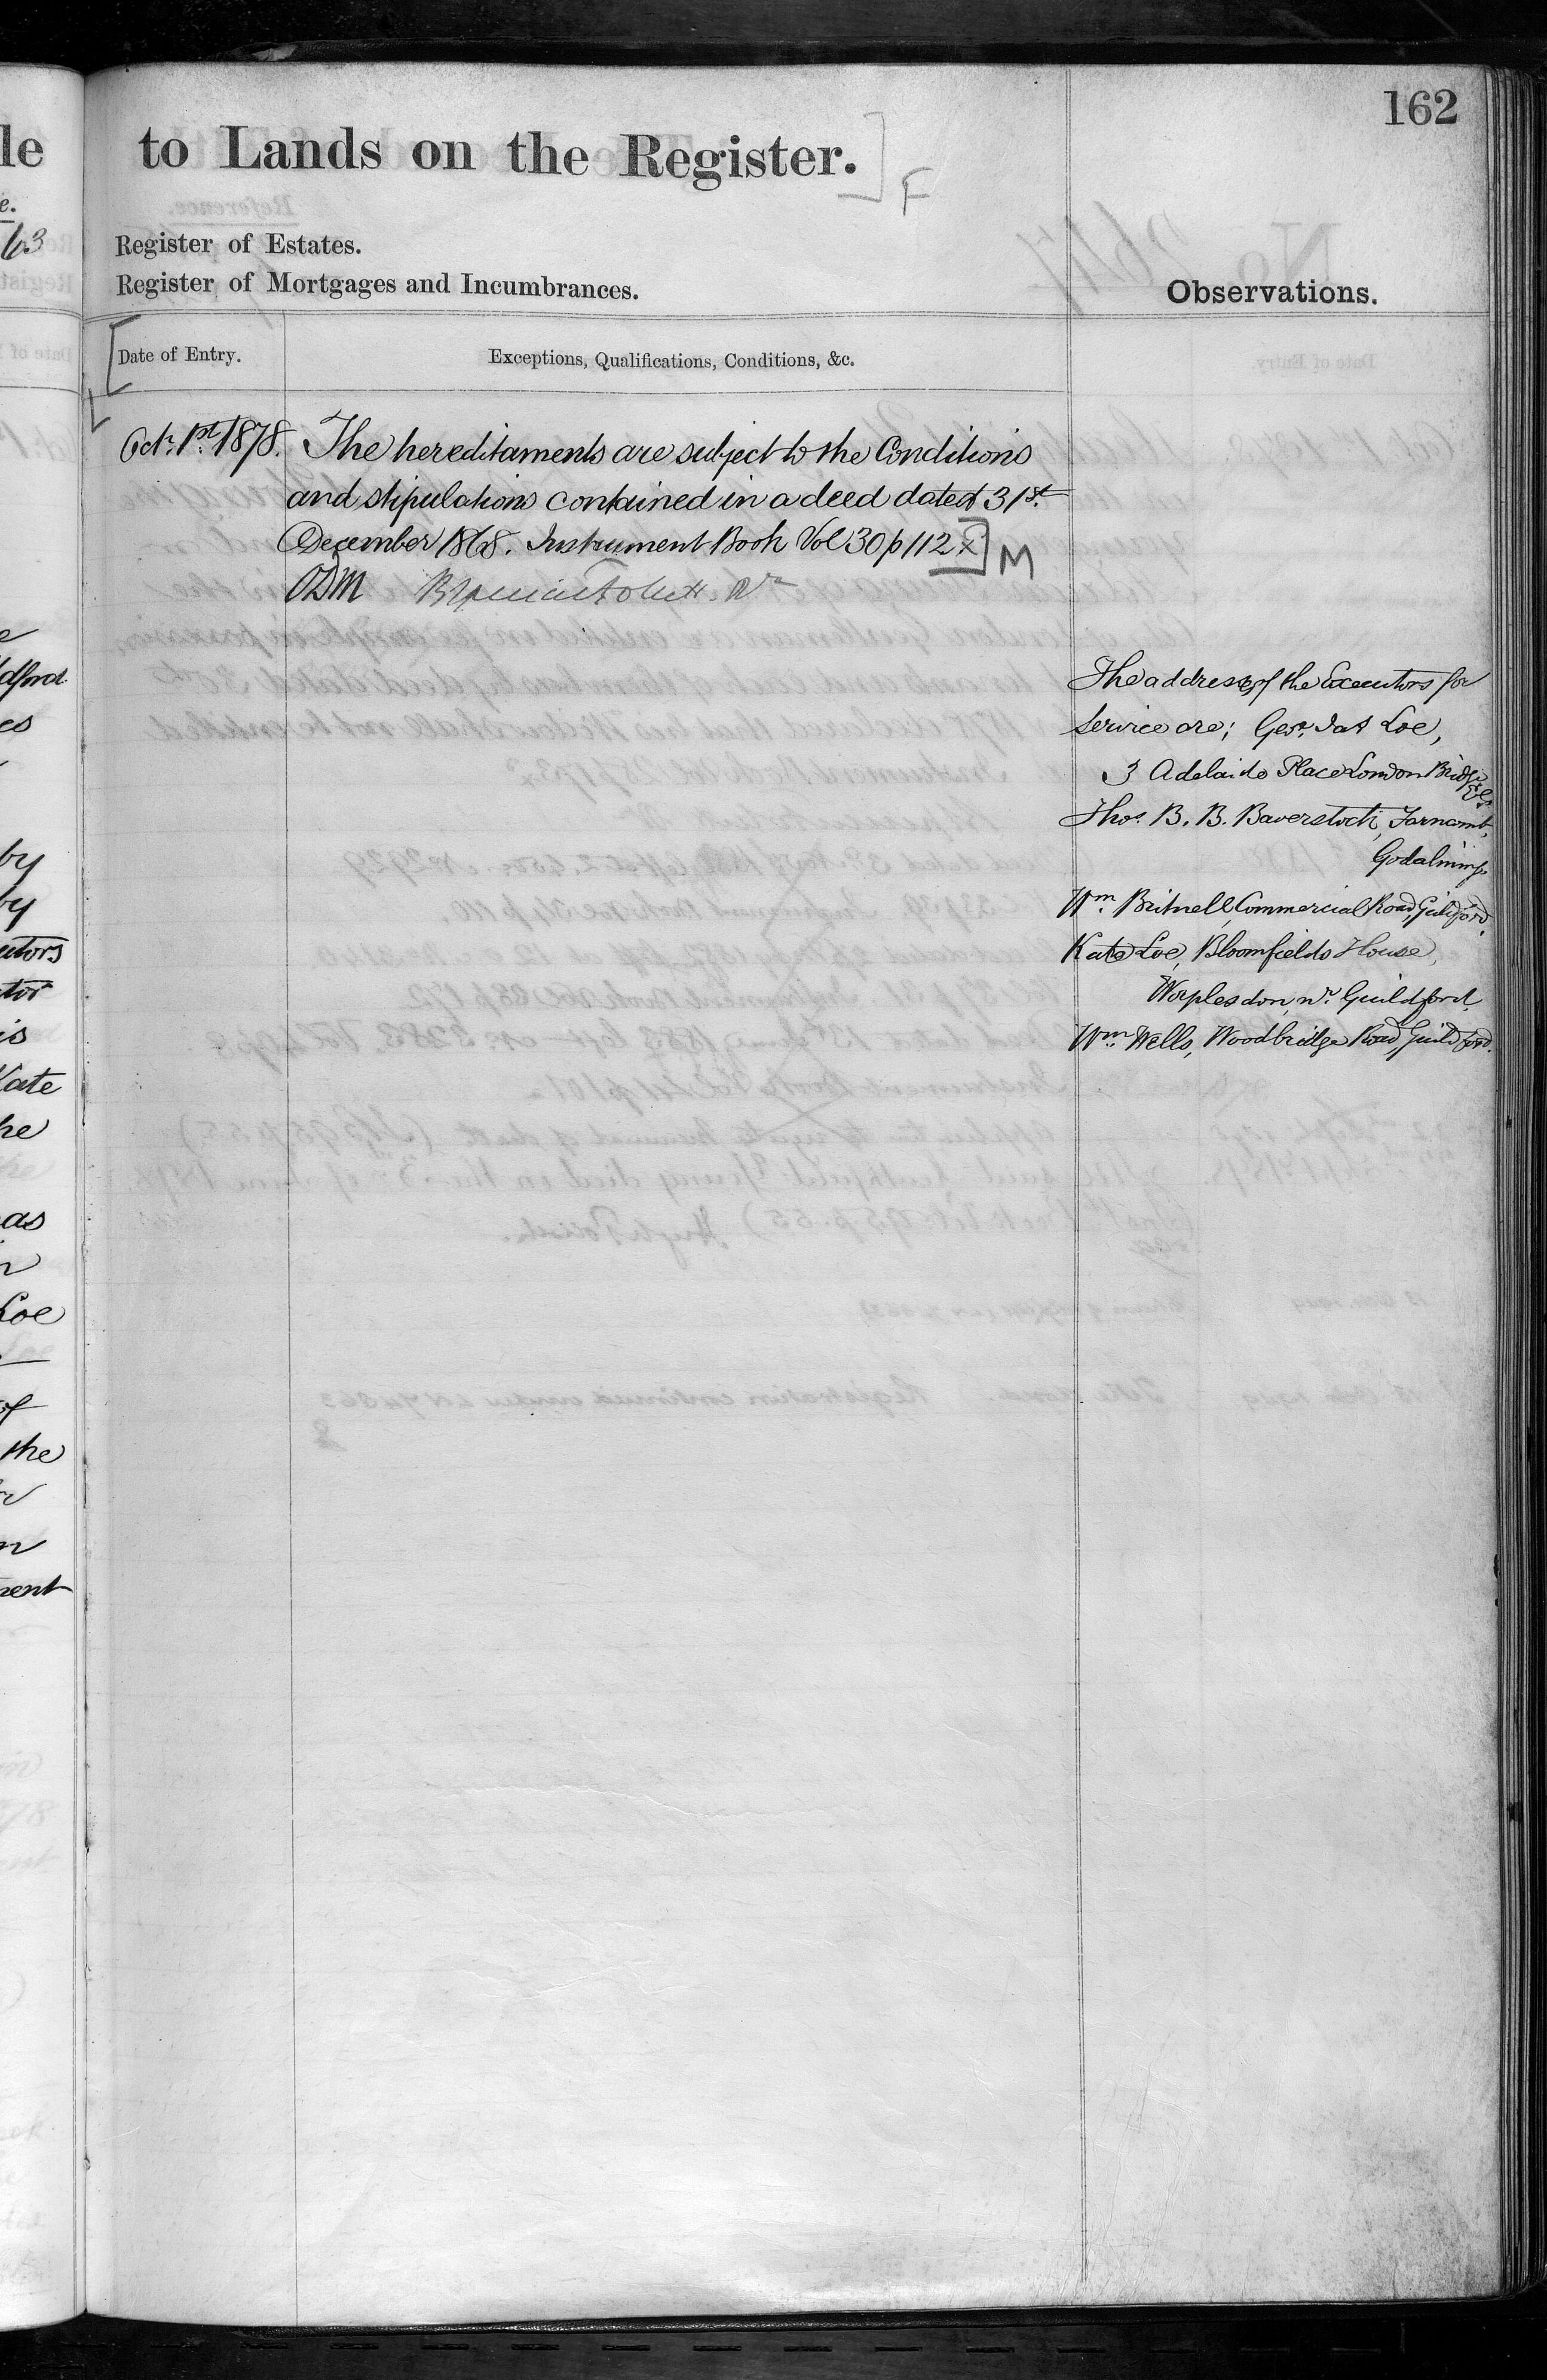 162
le
to Lands on the Register.
F
e.
63
Register of Estates.
Register of Mortgages and Incumbrances.
Observations.
Date of Entry.
Exceptions, Qualifications, Conditions, &c.
Octr. 1st. 1878.
The hereditaments are subject to the Conditions
and stipulations contained in a deed dated 31st.
December 1868. Instrument Book Vol 30 p 112
M
ODM
The addresses of the Executors for
Service are; Geo. Jas Loe,
3 Adelaide Place London Bridge
Thos. B. B. Baverstock,
Godalming
Wm. Britnell, Commercial Road, Guildford.
Kate Loe, Bloomfields House,
Worplesdon, nr. Guildford.
Wm. Wells, Woodbridge Road, Guildford.
by
by
utors
tor
is
Kate
he
as
Loe
of
the